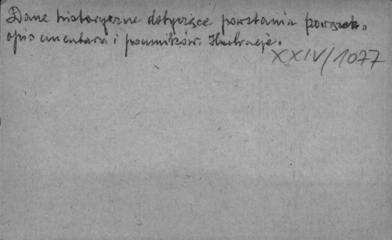 Dane historyczne dotyczące powstania Powązek,
opis cmentarza i pomników. Ilustracje.
XXIV/1077